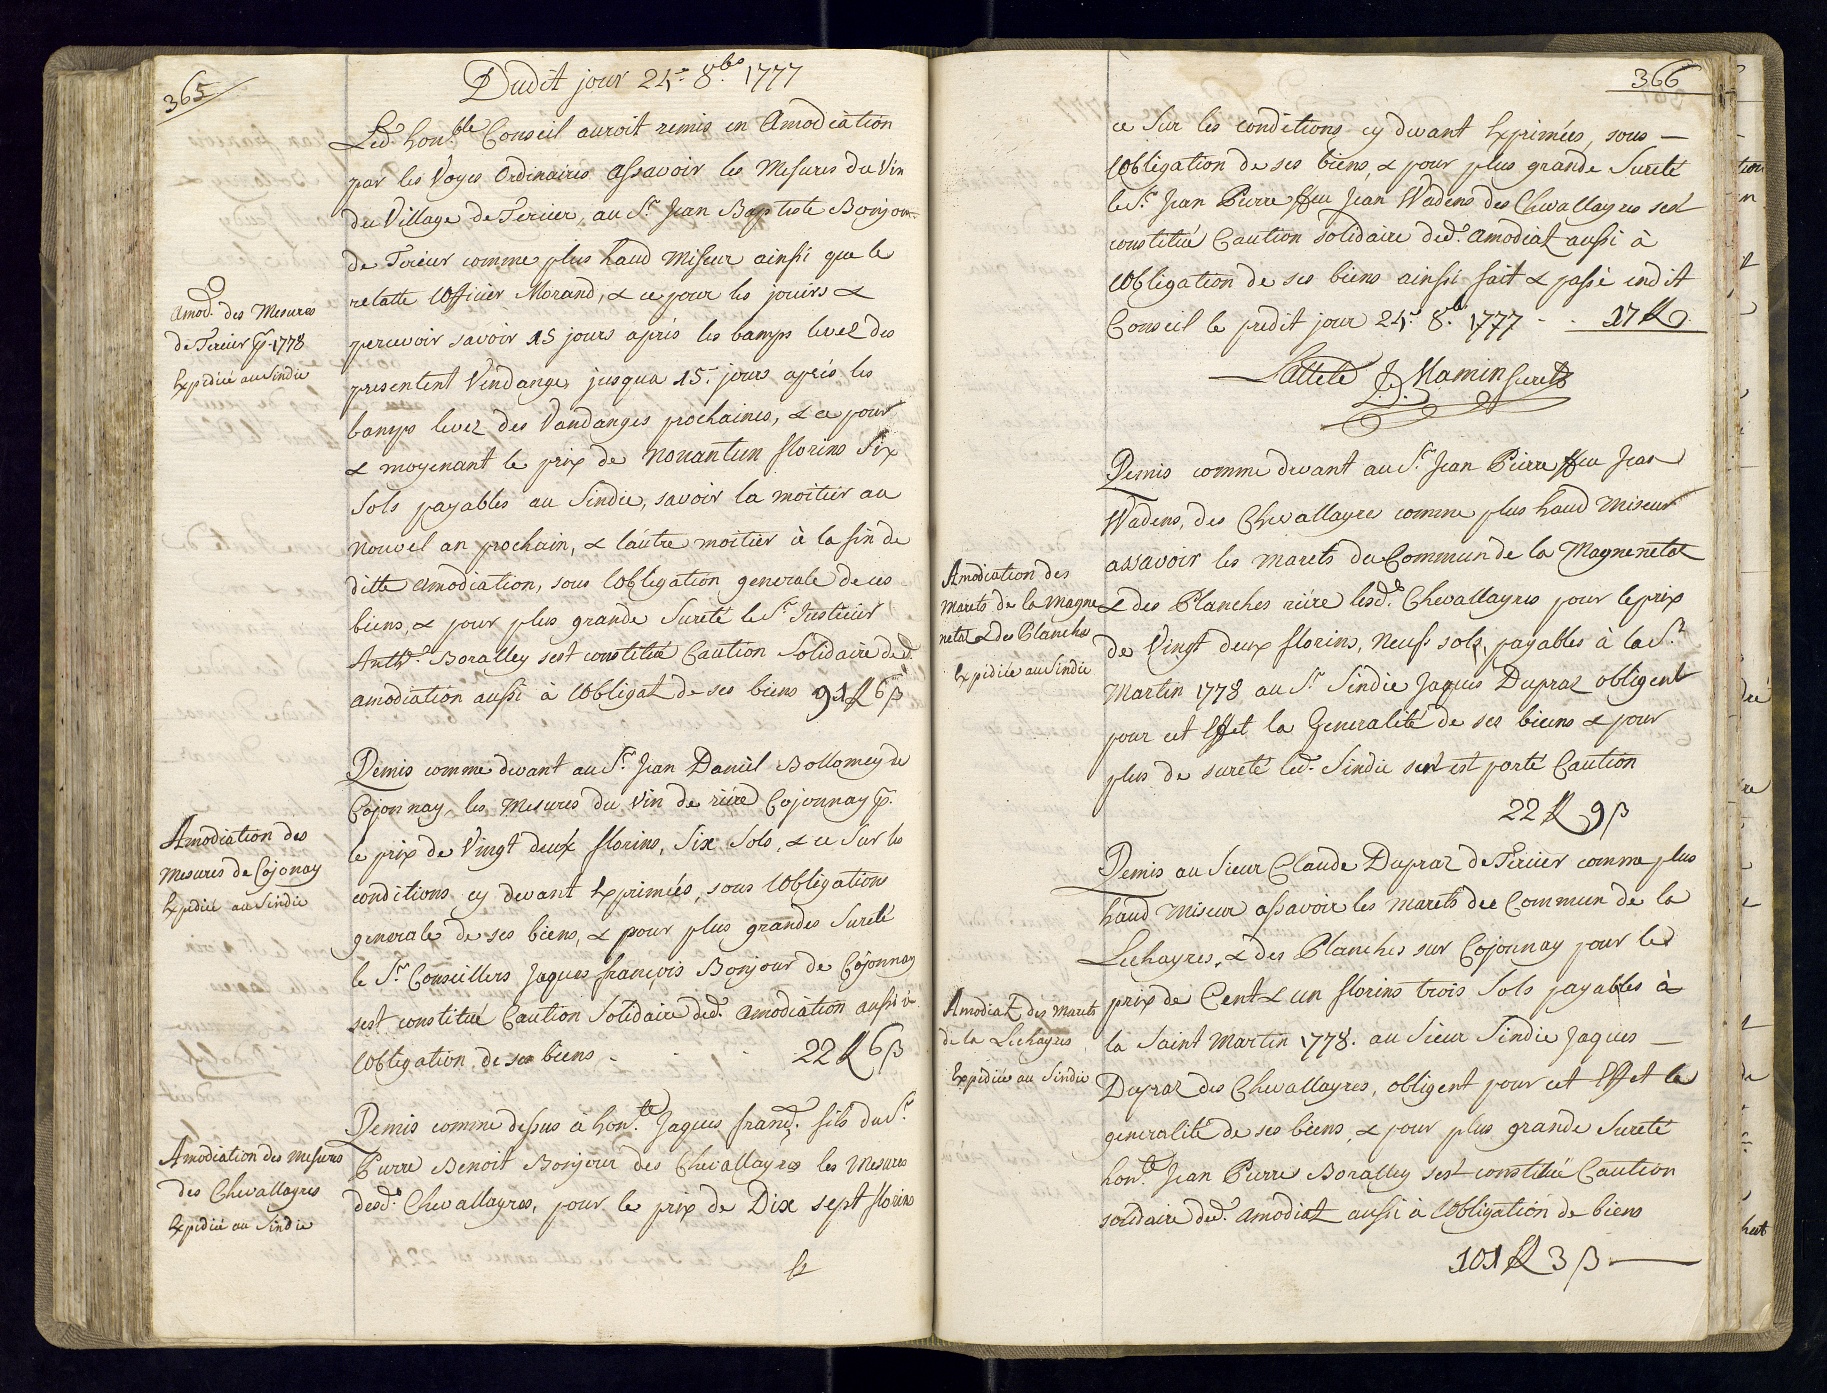 365
Dudit jour 24e 8bre 1777
Led. honble Conseil auroit remis en Amodiation
par les Voyes Ordinaires assavoir les Mesures du Vin
du Village de Tercier, au Sr Jean Baptiste Bonjour
de Tercier comme plus haud Miseur ainsi que le
relatte l'Officier Morand, & ce pour les jouirs &
percevoir savoir 15 jours aprés les bamps levez des
presentent Vendanges jusqua 15e jours aprés les
bamps levez des Vandanges prochaines, & ce pour
& moyenant le prix de nonantun florins Six
Sols payables au Sindic, savoir la moitier au
nouvel an prochain, & lautre moitier à la fin de
ditte amodiation, sous lobligation generale de ces
biens, & pour plus grande Sureté le Sr Justicier
Anthe Boralley sest constitué Caution Solidaire ded.
amodiation aussi à lobligat. de ses biens 91 fl 6 β
Amod. des Mesures
de Tercier pr 1778
Expediée au Sindic
Remis comme devant au Sr Jean Daniel Bollomey de
Cojonnay les Mesures du vin de riére Cojonnay pr.
le prix de Vingt deux florins, Six Sols, & ce Sur les
conditions cy devant Exprimées, sous lobligations
generale de ses biens, & pour plus grandes Sureté
le Sr Conseillers Jaques françois Bonjour de Cojonnay
sest constitué Caution Solidaire ded. amodiation aussi à
lobligation de ses biens - . . . 22 fl 6 β
Amodiation des
Mesures de Cojonay
Expediée au Sindic
Remis comme dessus à honte Jaques frand. fils du Sr
Pierre Benoit Bonjour des Chevallayres les Mesures
desd. Chevallayres, pour le prix de Dix sept florins
&
Amodiation des Mesures
des Chevallayres
Expediée au Sindic
366
ce Sur les conditions cy devant Exprimées, sous —
lobligation de ses biens, & pour plus grande Sureté
le Sr. Jean Pierre ffeu Jean Wadens des Chevallayres sest
constitué Caution solidaire ded. amodiat. aussi à
lobligation de ses biens ainsi fait & passé endit
Conseil le predit jour 24e 8bre 1777 - . 17 fl
L'atteste J. D. Mamin Secret.
Remis comme devant au Sr. Jean Pierre ffeu Jean
Wadens, des Chevallayre comme plus haud Miseur
assavoir les marets du Commun de la Magnenetaz
& des Planches riére lesd. Chevallayres pour le prix
de Vingt deux florins, Neufs sols, payables à la St
Martin 1778 au Sr. Sindic Jaques Dupraz obligent
pour cet Effet la Generalité de ses biens & pour
plus de sureté led. Sindic sen est porté Caution
22 fl 9 β
Amodiation des
Marets de la Magne
netaz & des Planche
Expediée au Sindic
Remis au Sieur Claude Dupraz de Tercier comme plus
haud Miseur assavoir les marets de Commun de la
Lechayres, & des Planches sur Cojonnay pour le
prix de Cent & un florins trois Sols payables à
la Saint Martin 1778. au Sieur Sindic Jaques —
Dupraz des Chevallayres, obligent pour cet Effet la
generalité de ses biens, & pour plus grande Sureté
honte. Jean Pierre Boralley sest constitué Caution
solidaire ded. amodiat. aussi à lobligation de biens
101 fl 3 β —
Amodiat. des Marets
de la Lechayres
Expediée au Sindic